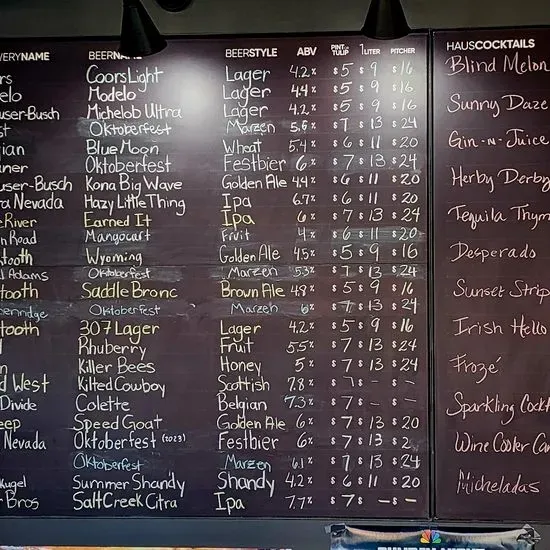 WERYNAME BEERNAME BEERSTYLE ABV PINT OR TULIP 1 LITER PITCHER
rs Coors Light Lager 4.2% $5 $9 $16
elo Modelo Lager 4.4% $5 $9 $16
user-Busch Michelob Ultra Lager 4.2% $5 $9 $16
st Oktoberfest Marzen 5.6% $7 $13 $24
ian Blue Moon Wheat 5.4% $6 $11 $20
aner Oktoberfest Festbier 6% $7 $13 $24
user-Busch Kona Big Wave Golden Ale 4.4% $6 $11 $20
ra Nevada Hazy Little Thing Ipa 6.7% $6 $11 $20
eRiver Earned It Ipa 6% $7 $13 $24
n Road Mangocart Fruit 4% $6 $11 $20
tooth Wyoming Golden Ale 4.5% $5 $9 $16
l Adams Oktoberfest Marzen 5.3% $7 $13 $24
tooth Saddle Bronc Brown Ale 4.8% $5 $9 $16
ckenridge Oktoberfest Marzen 6% $7 $13 $24
tooth 307 Lager Lager 4.2% $5 $9 $16
Rhuberry Fruit 5.5% $7 $13 $24
n Killer Bees Honey 5% $7 $13 $24
d West Kilted Cowboy Scottish 7.8% $7 $- -
Divide Colette Belgian 7.3% $7 - -
eep Speed Goat Golden Ale 6% $7 $13 $20
Nevada Oktoberfest (2023) Festbier 6% $7 $13 $2
Oktoberfest Marzen 6.1% $7 $13 $24
kugel Summer Shandy Shandy 4.2% $6 $11 $20
r Bros Salt Creek Citra Ipa 7.7% $7 $- $-
HAUSCOCKTAILS
Blind Melon
Sunny Daze
Gin-N-Juice
Herby Derby
Tequila Thym
Desperado
Sunset Strip
Irish Hello
Frozé
Sparkling Cockt
Wine Cooler Ca
Micheladas